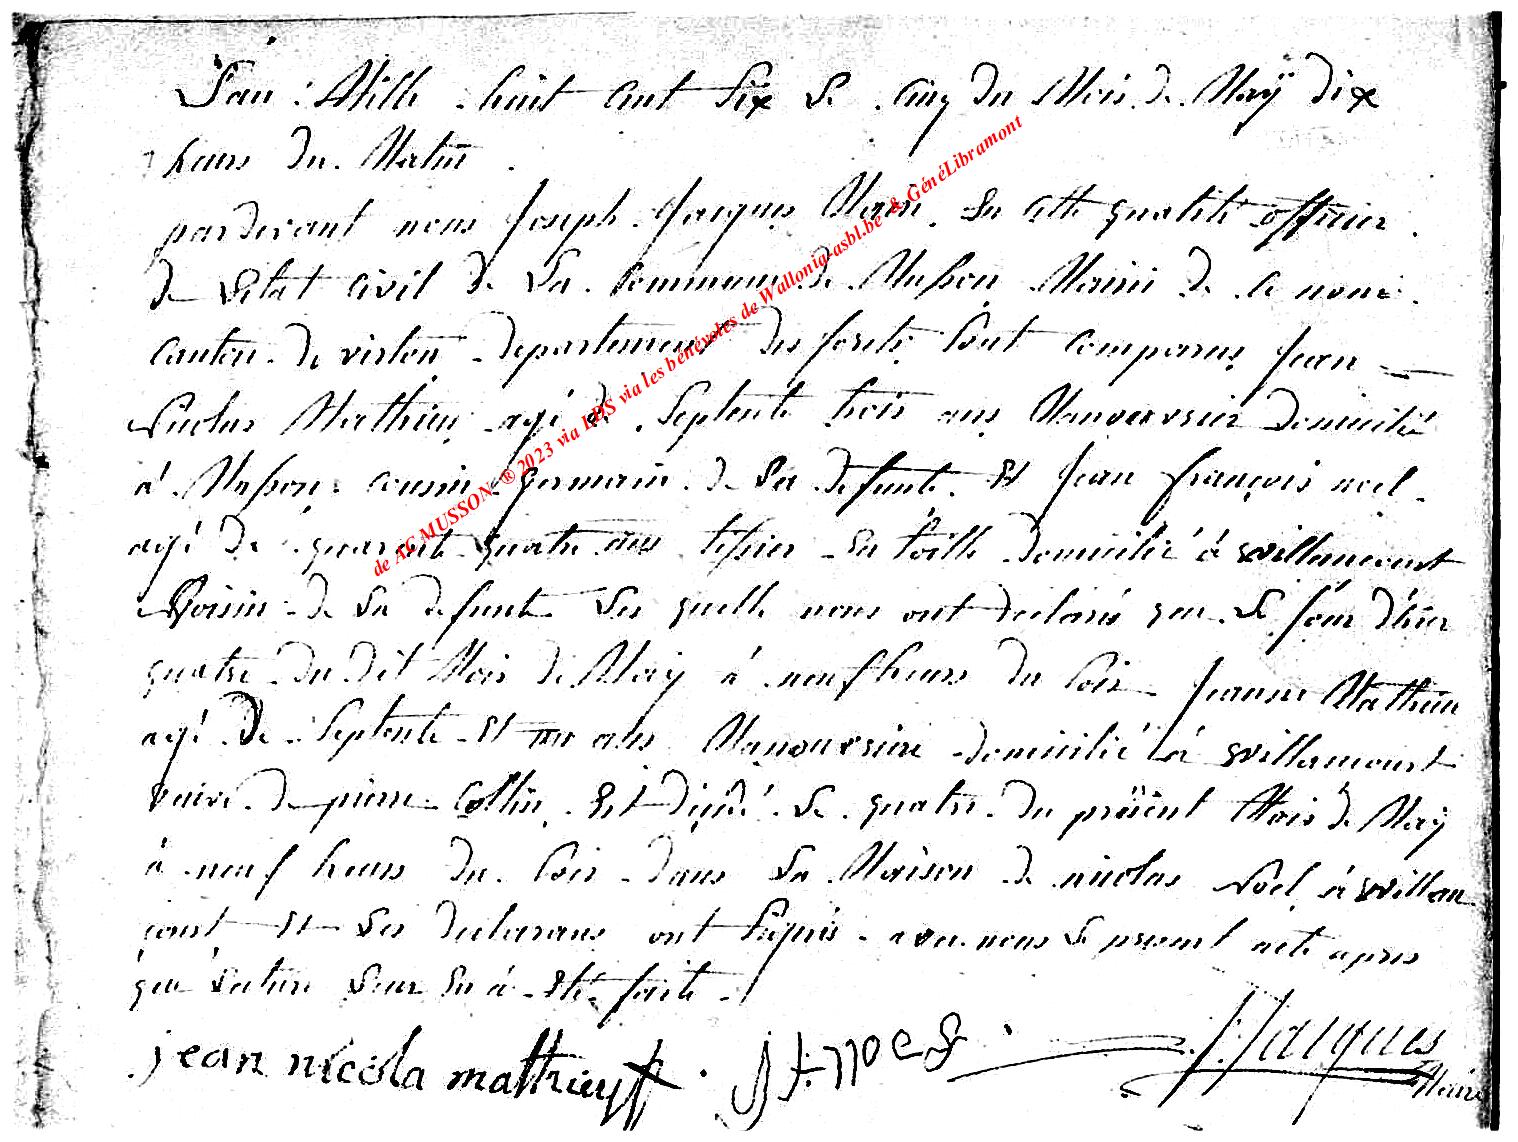 L'an Mille huit cent Six Le Cinq du Mois de Maÿ dix
heurs du Matin
pardevant nous Joseph Jacques Maire En cette qualité officier
de L'Etat Civil de La Commune de Musson Mairie de ce nom
Canton de virton departement des forets Sont comparus Jean
Nicolas Mathieu agé de Septente trois ans Manouvrier domicilié
á Musson cousin germain de La defunte Et Jean françois noel
agé de quarante quatre ans tessier En toille domicilié á willancourt
Voisin de La defunte Les quelle nous ont declarés que Le jour d'hier
quatre du dit Mois de May á neuf heurs du Soir Jeanne Mathieu
agé De Septente Et un ans Manouvriere domicilié á willancourt
veuve de pierre Collin Est dicedé Le quatre du présent Mois de Maÿ
á neuf heurs du Soir dans La Maison de nicolas Noel á willan
court Et Les declarans ont Signés avec nous Le present acte apres
que Lecture Leur En á Eté faite
jean nicola mathieu J f noel J Jacques
Maire
de AC MUSSON ® 2023 via LDS via les bénévoles de Wallonia-asbl.be & GénéLibramont